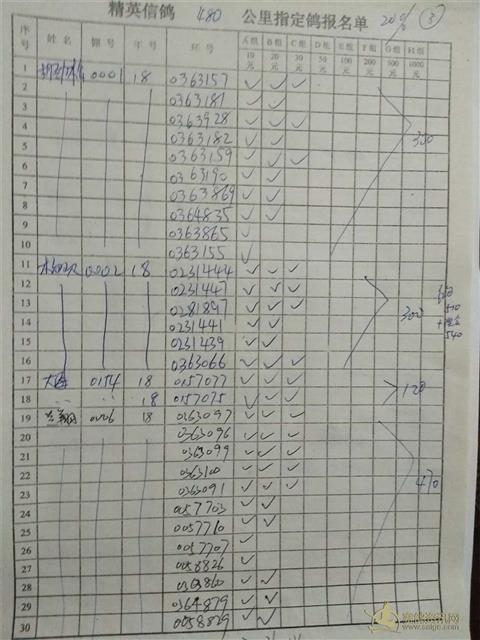 精英信鸽 480 公里指定鸽报名单 ③
序号 姓名 棚号 年号 环号 A组 B组 C组 D组 E组 F组 G组 H组
10元 20元 30元 50元 100元 200元 500元 1000元
1 0001 18 0363157 ✓ ✓ ✓
2 0363181 ✓ ✓
3 0363928 ✓ ✓ ✓
4 0363182 ✓ ✓
5 0363159 ✓ ✓ ✓
6 0363190 ✓ ✓
7 0363869 ✓ ✓
8 0364835 ✓ ✓
9 0363865 ✓
10 0363155 ✓
11 0002 18 0231444 ✓ ✓ ✓
12 0231447 ✓ ✓ ✓
13 0281897 ✓ ✓ ✓
14 0231441 ✓ ✓
15 0231439 ✓ ✓
16 0363066 ✓ ✓ ✓
300
17 0154 18 0157077 ✓ ✓ ✓
18 18 0157075 ✓ ✓ ✓
120
19 18 0363097 ✓ ✓ ✓
20 0363096 ✓ ✓ ✓
21 0363099 ✓ ✓ ✓
22 0363100 ✓ ✓ ✓
23 0363091 ✓ ✓ ✓
470
24 0057703 ✓ ✓
25 0057710 ✓ ✓
26 0057707 ✓
27 0058826 ✓
28 0363860 ✓ ✓
29 0364879 ✓ ✓
30 0058829 ✓ ✓
540